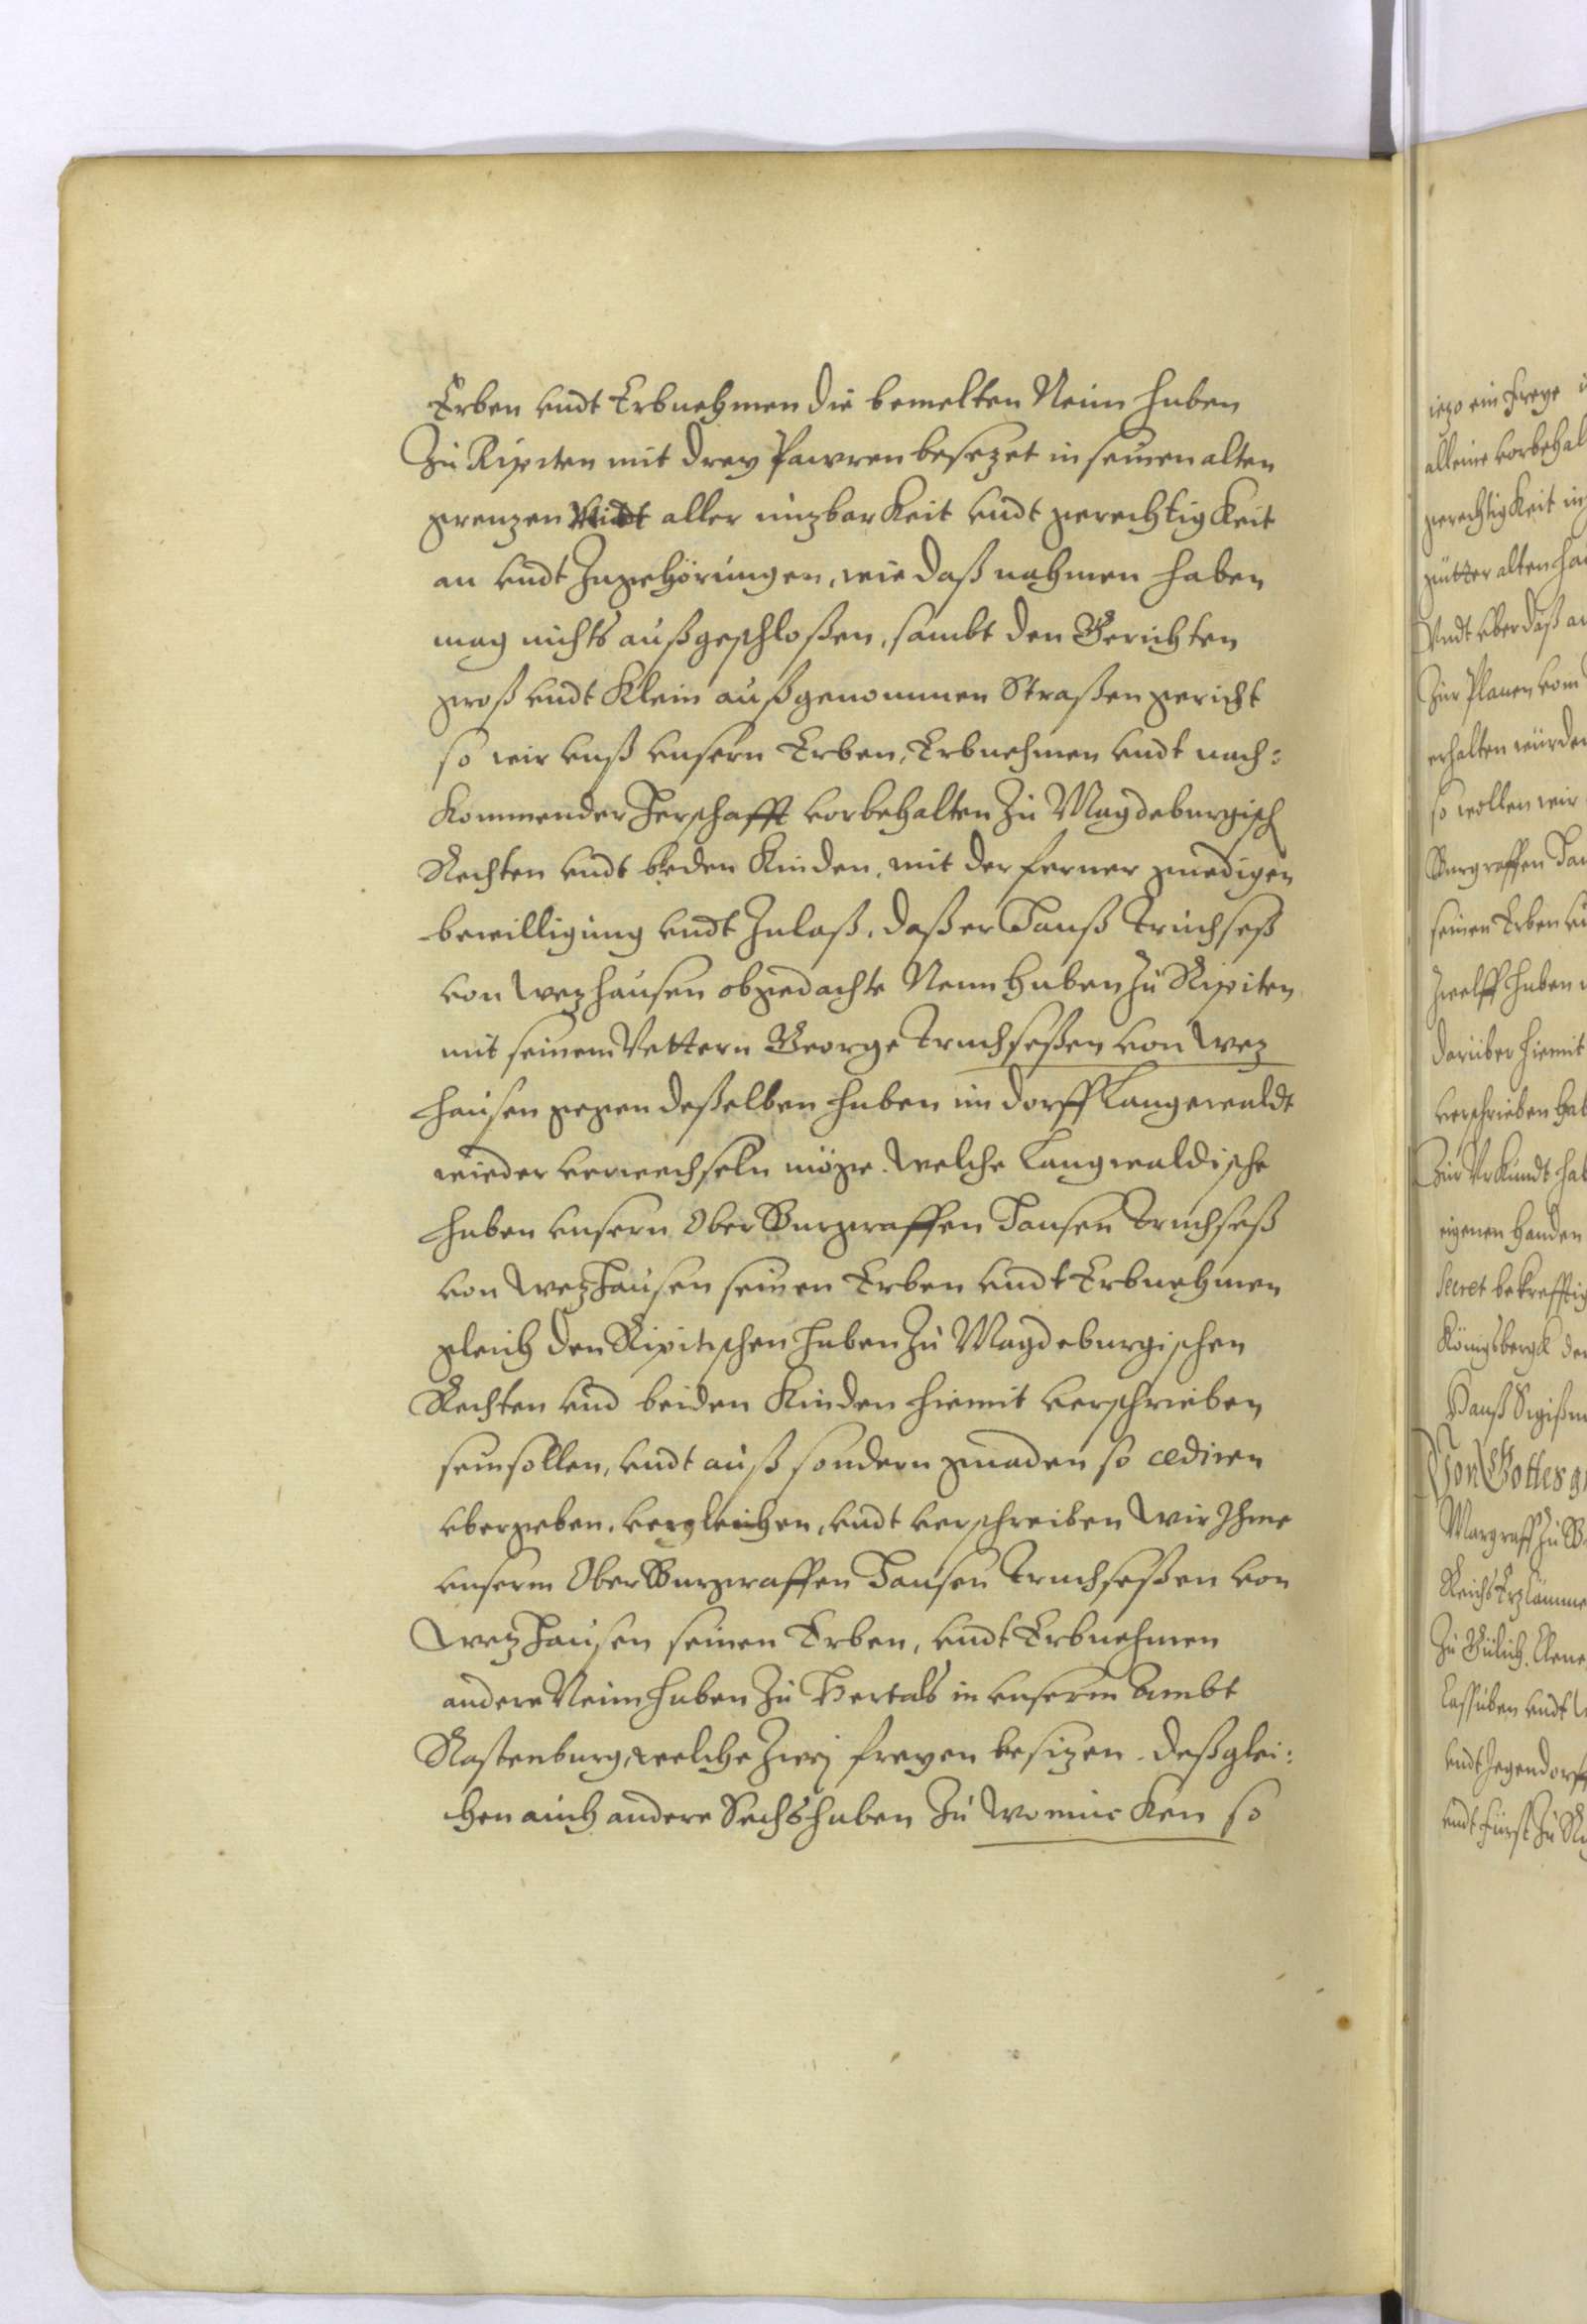 Erben vndt Erbnehmen die bemelten Neun huben
Zu Ripiten mit drey Pawren besezet in seinen alten
grenzen Midt aller nuzbarKeit vndt gerechtigKeit
an vndt Zugehörungen, wie daß nahmen haben
mag nichts außgeschloßen, sambt den Gerichten
groß vndt Klein außgenommen Straßen gericht
so wir vnß vnsern Erben, Erbnehmen vndt nach:
Kommender Herschafft vorbehalten Zu Magdeburgisch
Rechten vndt beden Kinden, mit der ferner gnedigen
bewilligung vndt Zulaß, daß er Hanß Truchseß
von Wezhausen obgedachte Neun huben Zu Ripiten
mit seinem Vettern George Truchseßen von Wez
hausen gegen deßelben huben im dorff Langewaldt
wieder verwechseln möge. Welche Langwaldische
huben vnserm OberBurggraffen Hansen Truchseß
von Wezhausen seinen Erben vndt Erbnehmen
gleich den Ripitischen huben Zu Magdeburgischen
Rechten vnd beiden Kinden hiemit verschrieben
sein sollen, vndt auß sondern gnaden so cediren
vbergeben, vergleichen, vndt verschreiben Wir Ihme
vnserm OberBurggraffen Hansen Truchseßen von
Wezhausen seinen Erben, vndt Erbnehmen
andere Neun huben Zu Hertals in vnserm Ambt
Rastenburg, welche Zwej freyen besizen. deßglei:
chen auch andere Sechs huben Zu WominicKen so
iezo ein Freye
alleine vorbehal
gerechtigKeit in
gütter alten ha
Vndt vber daß a
Zur Planen vom
erhalten würde
so wollen wir
Burggraffen Ha
seinen Erben v
Zwelff huben
darüber hiemit
verschrieben hab
Zur VrKundt hab
eigenen handen
Secret bekrefftig
Königsbergk de
Hanß Sigißm
Von Gottes g
Marggraff Zu B
Reichs ErzCamme
Zu Gülich, Cleue
Cassuben vndt
vndt Jegendorff
vndt Fürst Zu R